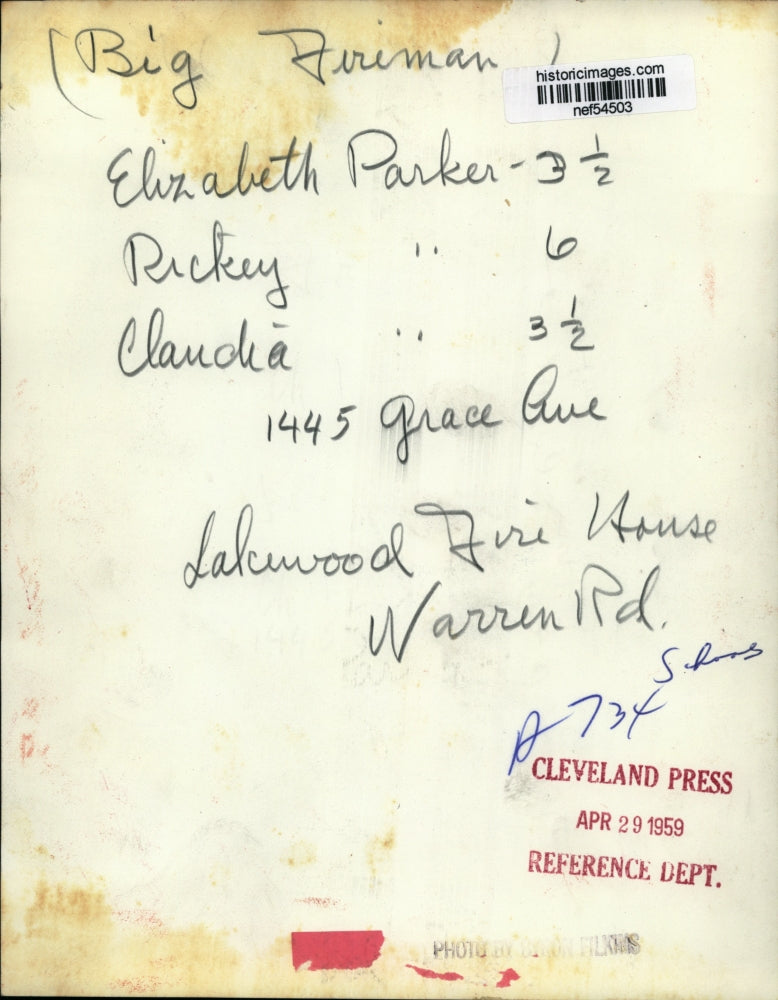 (Big Fireman)
historicimages.com
nef54503
Elizabeth Parker - 3 1/2
Rickey " 6
Claudia " 3 1/2
1445 Grace Ave
Lakewood Fire House
Warren Rd.
A-734
CLEVELAND PRESS
APR 29 1959
REFERENCE DEPT.
PHOTO BY